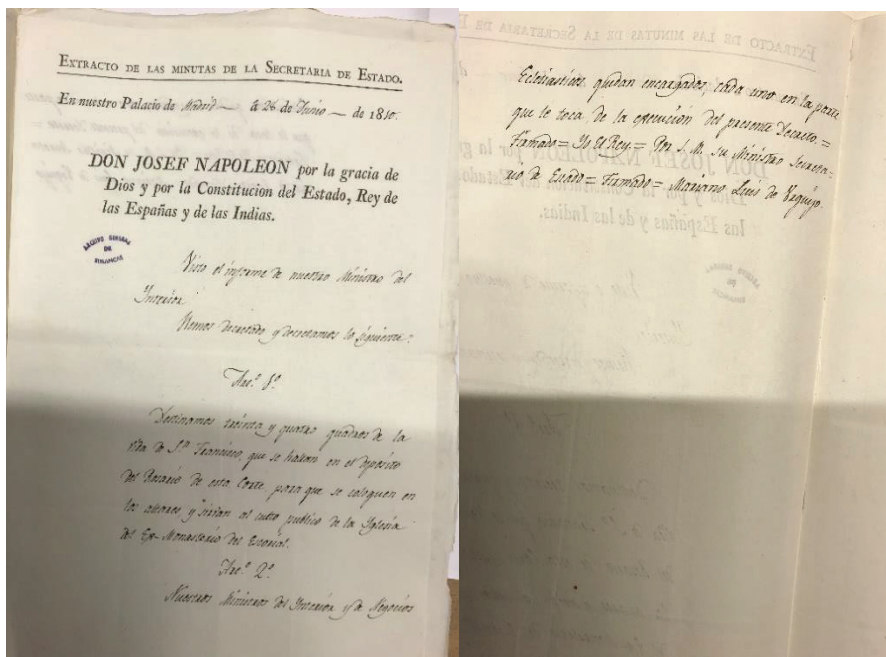 EXTRACTO DE LAS MINUTAS DE LA SECRETARIA DE ESTADO.
En nuestro Palacio de Madrid — á 26 de Junio — de 1810.
DON JOSEF NAPOLEON por la gracia de
Dios y por la Constitucion del Estado, Rey de
las Españas y de las Indias.
ARCHIVO GENERAL
DE
SIMANCAS
Visto el informe de nuestro Ministro del
Interior
Hemos decretado y decretamos lo siguiente:
Art.º 1º
Destinamos treinta y quatro quadros de la
vida de Sⁿ Francisco, que se hallan en el depósito
del Rosario de esta Corte, para que se coloquen en
los altares y sirvan al culto publico de la Yglesia
del Ex-Monasterio del Escorial.
Art.º 2º
Nuestros Ministros del Interior y de Negocios
Eclesiasticos quedan encargados, cada uno en la parte
que le toca, de la execucion del presente Decreto. =
Firmado = Yo el Rey = Por S. M. su Ministro Secreta-
rio de Estado = Firmado = Mariano Luis de Urquijo.